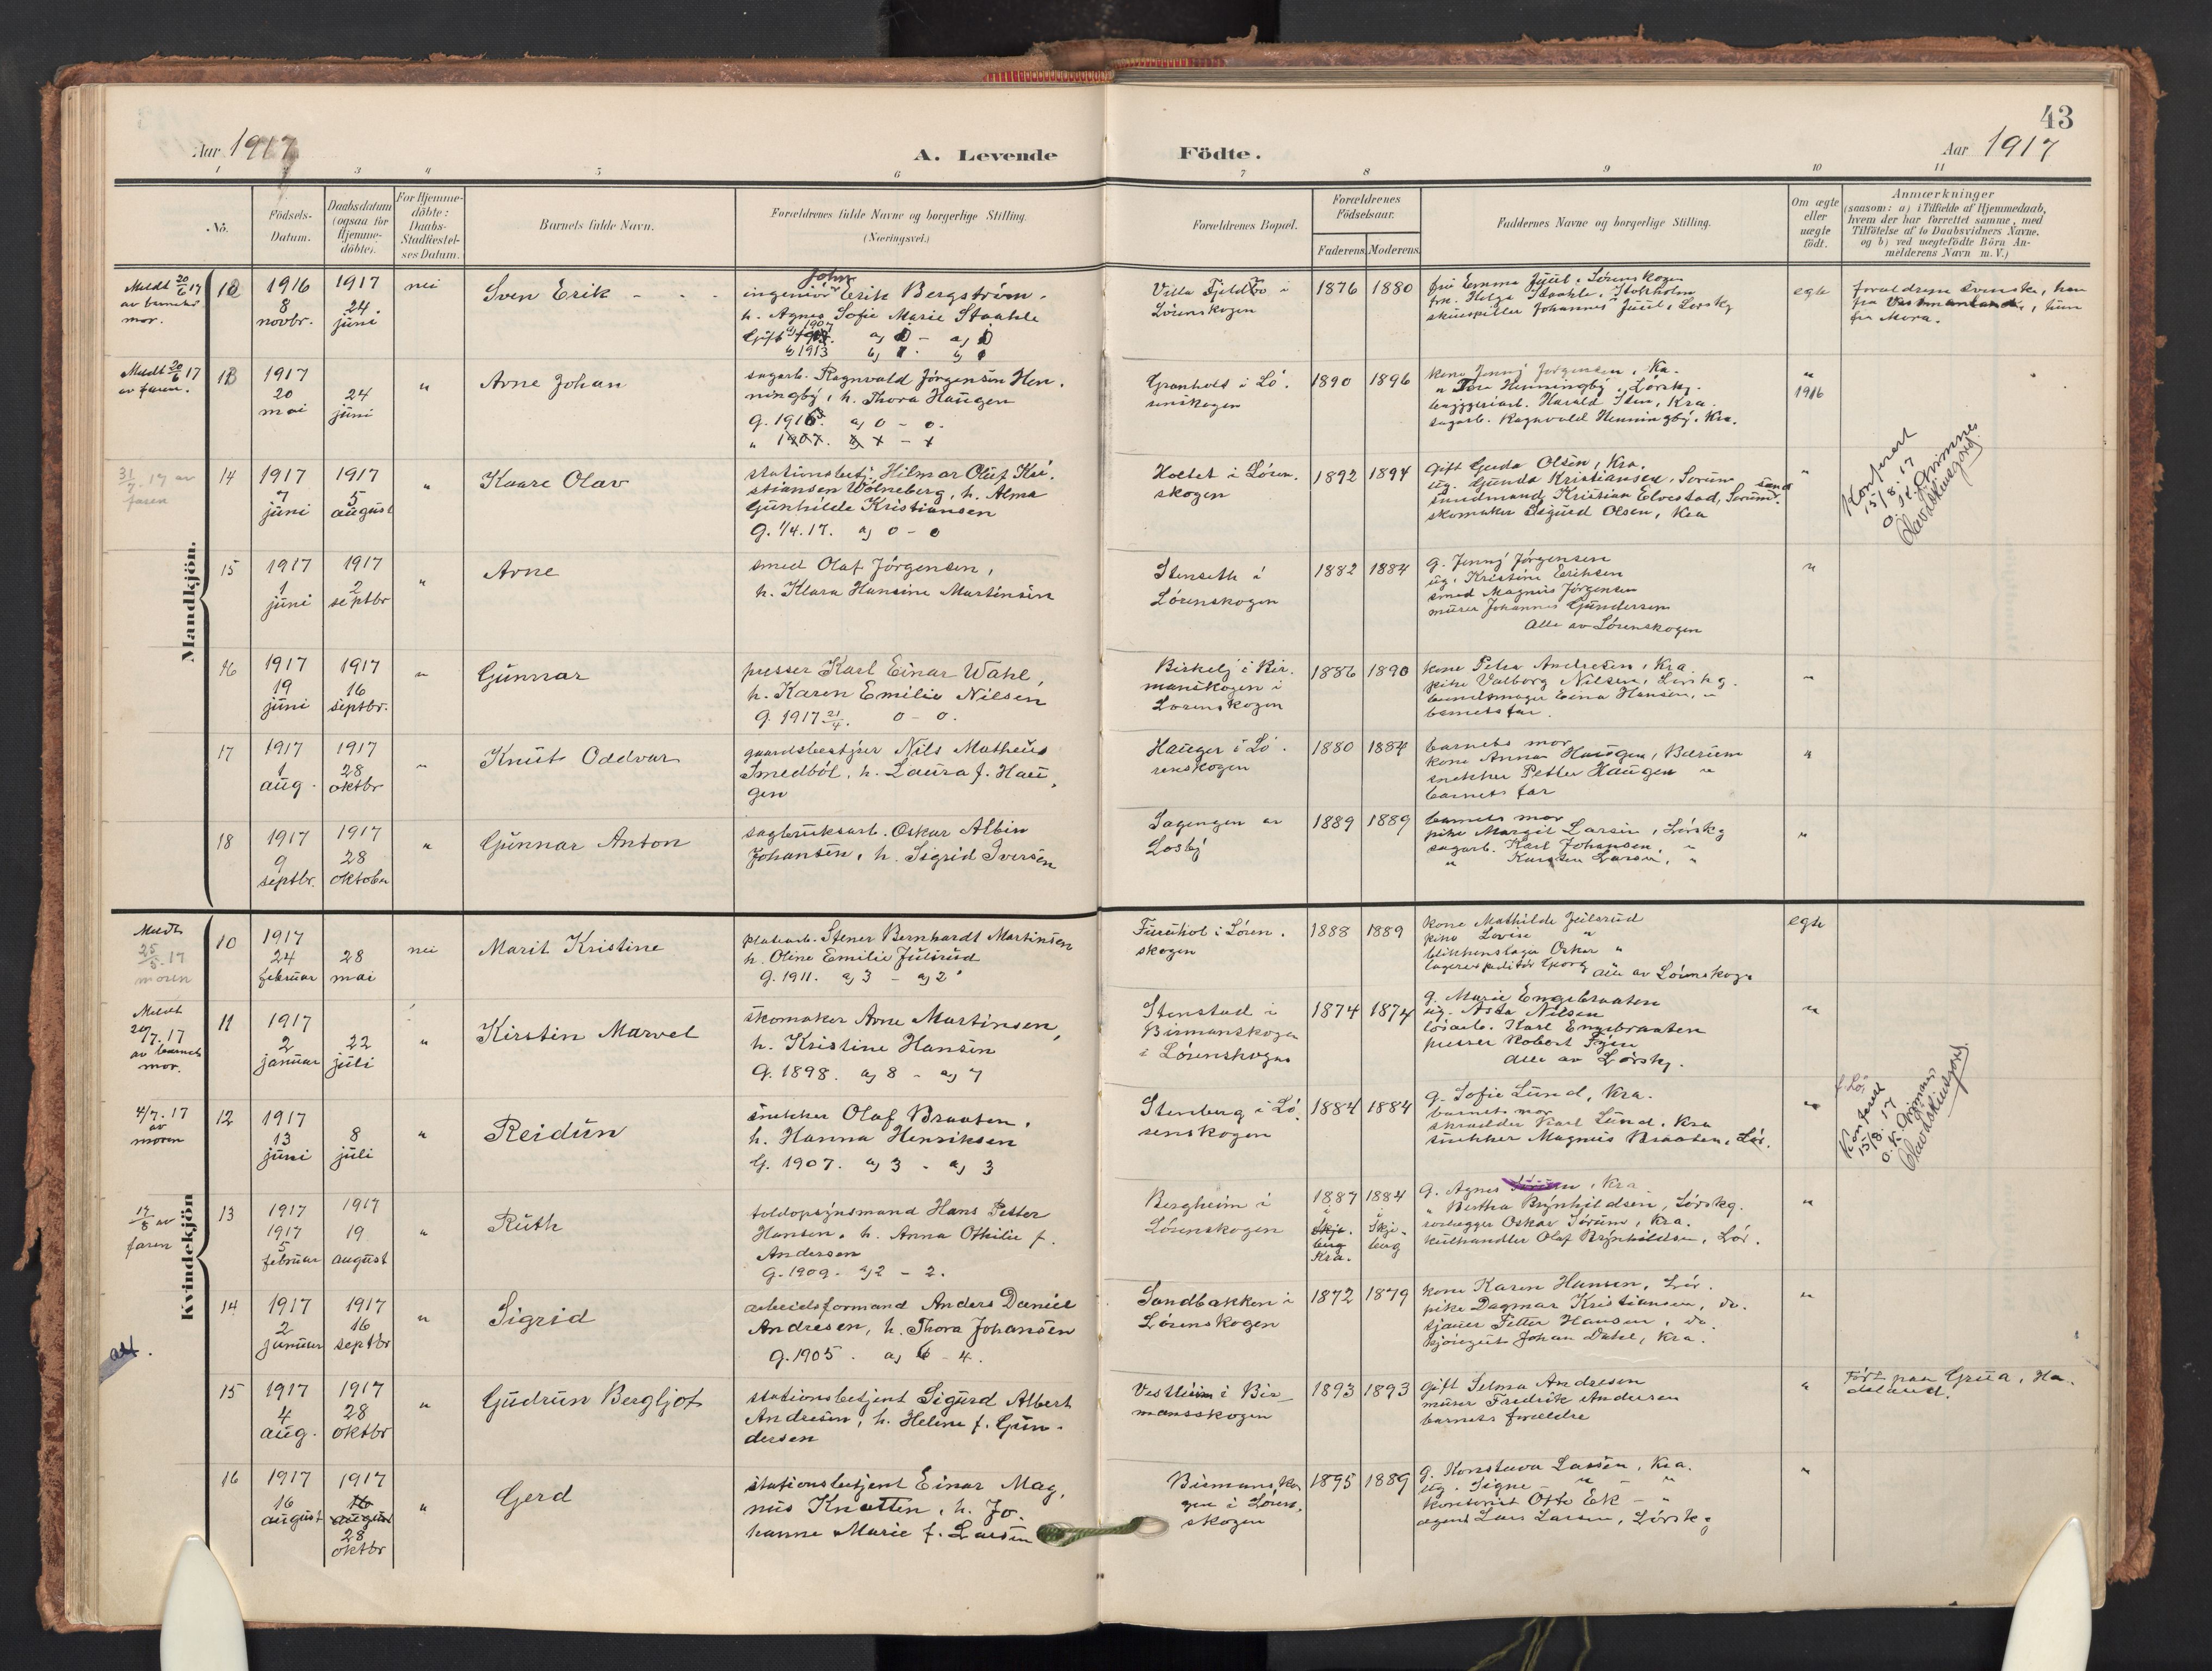 43
Aar 1917
A. Levende
Födte.
Aar 1917
1 2 3 4 5 6 7 8 9 10 11
No.
Födsels-
Datum.
Daabsdatum
(ogsaa for
Hjemme-
döbte).
For Hjemme-
döbte:
Daabs-
Stadfæstel-
ses Datum.
Barnets fulde Navn.
Forældrenes fulde Navne og borgerlige Stilling.
(Næringsvei.)
Forældrenes Bopæl.
Forældrenes
Födselsaar.
Faderens Moderens
Faddernes Navne og borgerlige Stilling.
Om ægte
eller
uægte
födt.
Anmærkninger
(saasom: a) i Tilfælde af Hjemmedaab,
hvem der har forrettet samme, med
Tilföielse af to Daabsvidners Navne,
og b) ved uægtefödte Börn An-
melderens Navn m. V.)
Mandkjön.
Meldt 20/6 17
av barnets
mor.
12
1916
8
novbr.
1917
24
juni
nei
Sven Erik
John
ingeniör Erik Bergström.
h. Agnes Sofie Marie Staahle
Gift a) 1907
b) 1913
Villa Fjeldbo i
Lörenskogen
1876 1880
fru Emma Juul, Lörenskogen
frk. Helga Staahle, Stokholm
skuespiller Johannes Juul, Lörskg
egte
foreldrene svenske, han
fra Vestmanland, hun
fra Mora.
Meldt 20/6 17
av faren.
13
1917
20
mai
24
juni
"
Arne Johan
sagarb. Ragnvald Jörgensen Hen-
ningby, h. Thora Haugen
g. 1916. a) 0 - 0.
" 1907. x - x
Granholt i Lö-
renskogen
1890 1896
kone Jenny Jörgensen, Ka.
" Tora Henningby, Lörskg.
bryggeriarb. Harald Sten, Kra.
sagarb. Ragnvald Henningby, Kra.
"
1916
31/7. 17 av
faren
14
1917
7
juni
1917
5
august
"
Kaare Olav
stationsbetj. Hilmar Oluf Kri-
stiansen Wolneberg, h. Alma
Gunhilde Kristiansen
g. 1/4. 17. a) 0 - 0
Holtet i Lören-
skogen
1892 1894
gift Gerda Olsen, Kra.
ug. Gunda Kristiansen, Sörum sand
sundmand Kristian Elvestad, Sörums.
skomaker Sigurd Olsen, Kra
"
Konferert
15/8. 17
O. K. Grimnes
15
1917
1
juni
1917
2
septbr
"
Arne
smed Olaf Jörgensen,
h. Klara Hansine Martinsen
Stenseth i
Lörenskogen
1882 1884
g. Jenny Jörgensen
ug. Kristine Eriksen
smed Magnus Jörgensen
murer Johannes Gundersen
alle av Lörenskogen
"
16
1917
19
juni
1917
16
septbr.
"
Gunnar
presser Karl Einar Wahl,
h. Karen Emilie Nilsen
g. 1917 21/4. 0 - 0.
Birkely i Bir-
manskogen i
Lörenskogen
1886 1890
kone Petra Andresen, Kra.
pike Valborg Nilsen, Lörskg.
buntmager Einar Hansen, "
barnets far.
"
17
1917
1
aug.
1917
28
oktbr
"
Knut Oddvar
gaardsbestyrer Nils Matheus
Smedböl, h. Laura f. Hau-
gen
Hauger i Lö-
renskogen
1880 1884
barnets mor
kone Anna Haugen, Bærum
snekker Petter Haugen "
barnets far
"
18
1917
9
septbr.
1917
28
oktober
"
Gunnar Anton
sagbruksarb. Oskar Albin
Johansen, h. Sigrid Iversen
Sagengen av
Losby
1889 1889
barnets mor
pike Margit Larsen, Lörskg
sagarb. Karl Johansen, "
" Karsten Larsen, "
"
Kvindekjön
Meldt
25/5. 17
moren
10
1917
24
februar
28
mai
nei
Marit Kristine
platearb. Stener Bernhardt Martinsen
h. Oline Emilie Julsrud
g. 1911. a) 3 - a) 2
Furuhol i Lören-
skogen
1888 1889
kone Mathilde Julsrud
pike Lovise "
blikkenslager Oskar "
lagerexpeditör Georg alle av Lörenskogn
egte
Meldt
20/7. 17
av barnets
mor.
11
1917
2
januar
22
juli
"
Kirsten Marvel
skomaker Arne Martinsen,
h. Kristine Hansen
g. 1898. a) 8 - a) 7
Stenstad i
Birmanskogen
i Lörenskogen
1874 1874
g. Marie Engebraaten
ug. Asta Nilsen
lösarb. Karl Engebraaten
presser Robert
alle av Lörskg.
"
4/7. 17
av
moren
12
1917
13
juni
8
juli
"
Reidun
snekker Olaf Braaten,
h. Hanna Henriksen
G. 1907. a) 3 - a) 3
Stenberg i Lö-
renskogen
1884 1884
g. Sofie Lund, Kra.
barnets mor
skrædder Karl Lund, Kra
snekker Magnus Braaten, Lör.
"
Konferert
15/8. 17
O. K. Grimnes
17/8 av
faren
13
1917
1917
5
februar
1917
19
august
"
Ruth
toldopsynsmand Hans Petter
Hansen, h. Anna Othilie f.
Andersen
g. 1909. a) 2 - 2.
Bergheim i
Lörenskogen
1887
i
Skje-
berg
Kra.
1884
i
Skje-
berg
g. Agnes Sörum, Kra
" Bertha Brynhildsen, Lörskg.
rörlegger Oskar Sörum, Kra.
kulhandler Olaf Brynhildsen, Lör.
"
14
1917
2
januar
1917
16
septbr
"
Sigrid
arbeidsformand Anders Daniel
Andresen, h. Thora Johansen
g. 1905. a) 6 - 4.
Sandbakken i
Lörenskogen
1872 1879
kone Karen Hansen, Lör.
pike Dagmar Kristiansen, do.
sjauer Petter Hansen, do.
sjöugut Johan Dahl, Kra.
"
att.
15
1917
4
aug.
1917
28
oktbr
"
Gudrun Bergljot
stationsbetjent Sigurd Albert
Andresen, h. Helene f. Gun-
dersen
Vestheim i Bir-
mansskogen
1893 1893
gift Selma Andresen
murer Fredrik Andersen
barnets foreldre
"
Født paa Grua, Ha-
deland.
16
1917
16
august
1917
16
august
28
oktbr
"
Gerd
stationsbetjent Einar Mag-
nus Knatten, h. Jo-
hanne Marie f. Larsen
Birmansko-
gen i Lören-
skogen
1895 1889
g. Konstava Larsen, Kra.
ug. Signe " - "
kontorist Otto Ek - "
agent Lars Larsen, Lörskg
"